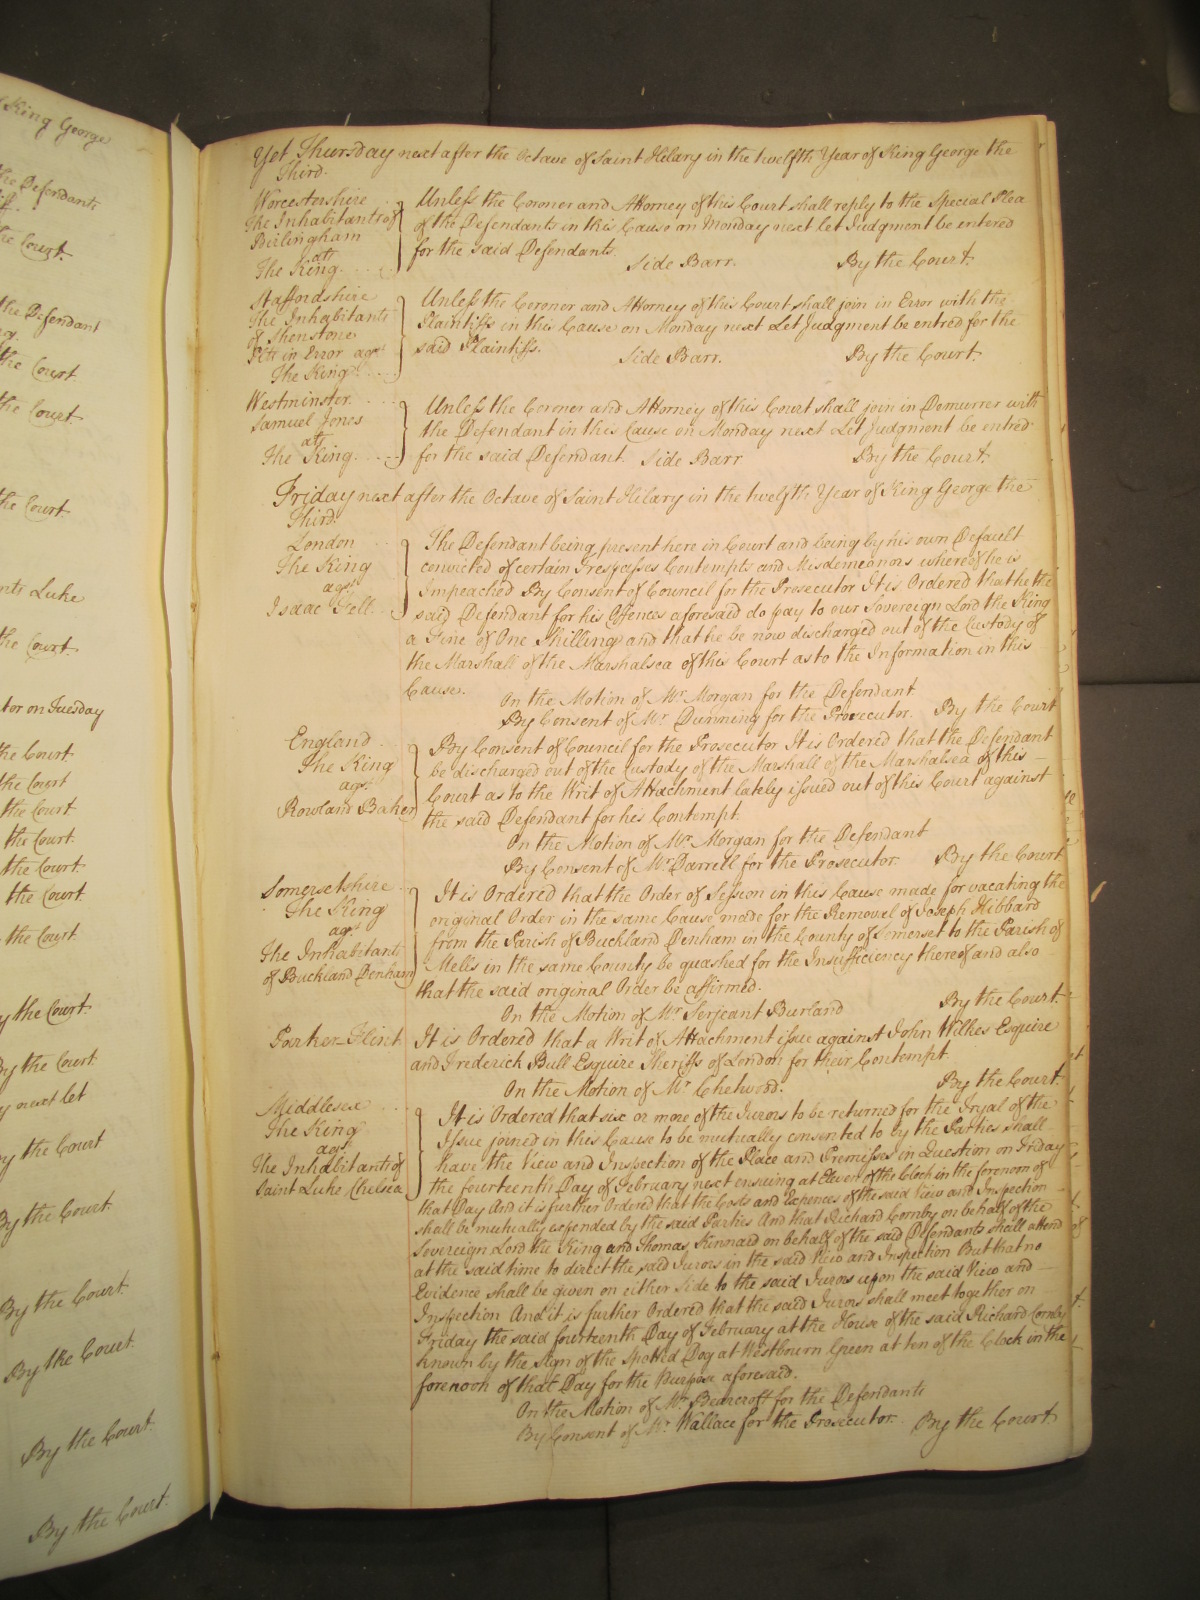 King George
the Defendants
the Court.
the Defendant
the Court
the Court
the Court
Luke
the Court.
on Tuesday
the Court
the Court
the Court
the Court
the Court
the Court
the Court
By the Court.
By the Court
next let
By the Court
By the Court.
By the Court.
By the Court
By the Court.
By the Court.
Yet Thursday next after the Octave of Saint Hilary in the twelfth Year of King George the
Third.
Worcestershire
The Inhabitants of
Birlingham
ats
The King
Unless the Coroner and Attorney of this Court shall reply to the Special Plea
of the Defendants in this Cause on Monday next let Judgment be entered
for the said Defendants.
Side Barr. By the Court.
Staffordshire
The Inhabitants
of Shenstone
Plts in Error agst
The King
Unless the Coroner and Attorney of this Court shall join in Error with the
Plaintiffs in this Cause on Monday next Let Judgment be entred for the
said Plaintiffs. Side Barr. By the Court.
Westminster
Samuel Jones
ats
The King
Unless the Coroner and Attorney of this Court shall join in Demurrer with
the Defendant in this Cause on Monday next Let Judgment be entred
for the said Defendant. Side Barr By the Court.
Friday next after the Octave of Saint Hilary in the twelfth Year of King George the
Third.
London
The King
agst
Isaac Fell
The Defendant being present here in Court and being by his own Default
convicted of certain Trespasses Contempts and Misdemeanors whereof he is
Impeached By Consent of Council for the Prosecutor It is Ordered that he the
said Defendant for his Offences aforesaid do pay to our Sovereign Lord the King
a Fine of One Shilling and that he be now discharged out of the Custody of
the Marshall of the Marshalsea of this Court as to the Information in this
Cause.
On the Motion of Mr. Morgan for the Defendant
By Consent of Mr. Dunning for the Prosecutor. By the Court
England
The King
agst
Rowland Baker
By Consent of Council for the Prosecutor It is Ordered that the Defendant
be discharged out of the Custody of the Marshall of the Marshalsea of this
Court as to the Writ of Attachment lately issued out of this Court against
the said Defendant for his Contempt.
On the Motion of Mr. Morgan for the Defendant
By Consent of Mr. Darrell for the Prosecutor. By the Court
Somersetshire
The King
agst
The Inhabitants
of Buckland Denham
It is Ordered that the Order of Session in this Cause made for vacating the
original Order in the same Cause made for the Removal of Joseph Hibbard
from the Parish of Buckland Denham in the County of Somerset to the Parish of
Mells in the same County be quashed for the Insufficiency thereof and also
that the said original Order be affirmed.
On the Motion of Mr. Serjeant Burland By the Court.
Parker - Flint
It is Ordered that a Writ of Attachment issue against John Wilkes Esquire
and Frederick Bull Esquire Sheriffs of London for their Contempt.
On the Motion of Mr. Chetwood. By the Court.
Middlesex
The King
agst
The Inhabitants of
Saint Luke Chelsea
It is Ordered that six or more of the Jurors to be returned for the Tryal of the
Issue joined in this Cause to be mutually consented to by the Parties shall
have the View and Inspection of the Place and Premisses in Question on Friday
the fourteenth Day of February next ensuing at Eleven of the Clock in the forenoon of
that Day And it is further Ordered that the Costs and Expences of the said View and Inspection
shall be mutually expended by the said Parties And that Richard Cornby on behalf of the
Sovereign Lord the King and Thomas Kinnard on behalf of the said Defendants shall attend
at the said time to direct the said Jurors in the said View and Inspection But that no
Evidence shall be given on either Side to the said Jurors upon the said View and
Inspection And it is further Ordered that the said Jurors shall meet together on
Friday the said fourteenth Day of February at the House of the said Richard Cornby
known by the Sign of the Spotted Dog at Westbourn Green at ten of the Clock in the
forenoon of that Day for the Purpose aforesaid.
On the Motion of Mr. Bearcroft for the Defendants
By Consent of Mr. Wallace for the Prosecutor. By the Court